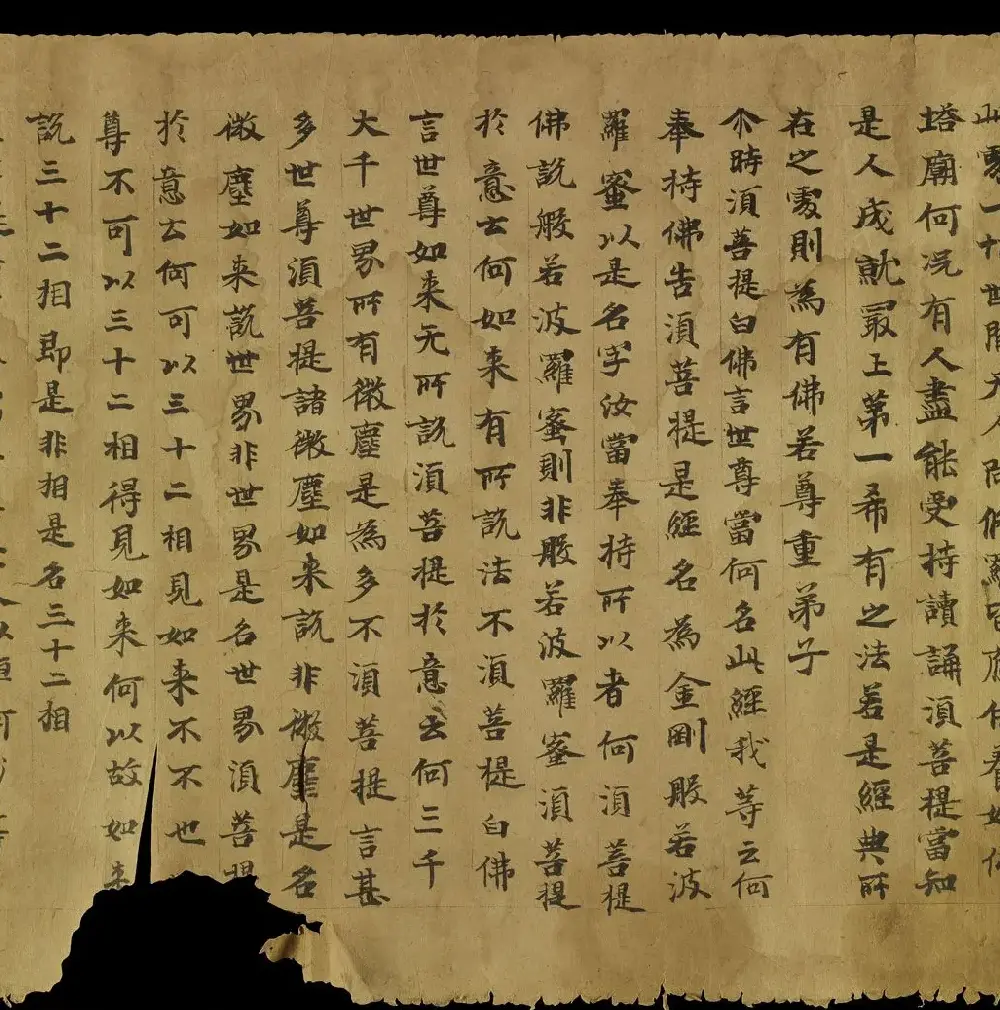 處一切世間天人阿修羅皆應供養如佛
塔廟何況有人盡能受持讀誦須菩提當知
是人成就最上第一希有之法若是經典所
在之處則為有佛若尊重弟子
尒時須菩提白佛言世尊當何名此經我等云何
奉持佛告須菩提是經名為金剛般若波
羅蜜以是名字汝當奉持所以者何須菩提
佛說般若波羅蜜則非般若波羅蜜須菩提
於意云何如来有所說法不須菩提白佛
言世尊如来无所說須菩提於意云何三千
大千世界所有微塵是為多不須菩提言甚
多世尊須菩提諸微塵如来說非微塵是名
微塵如来說世界非世界是名世界須菩提
於意云何可以三十二相見如来不不也
尊不可以三十二相得見如来何以故如来
說三十二相即是非相是名三十二相